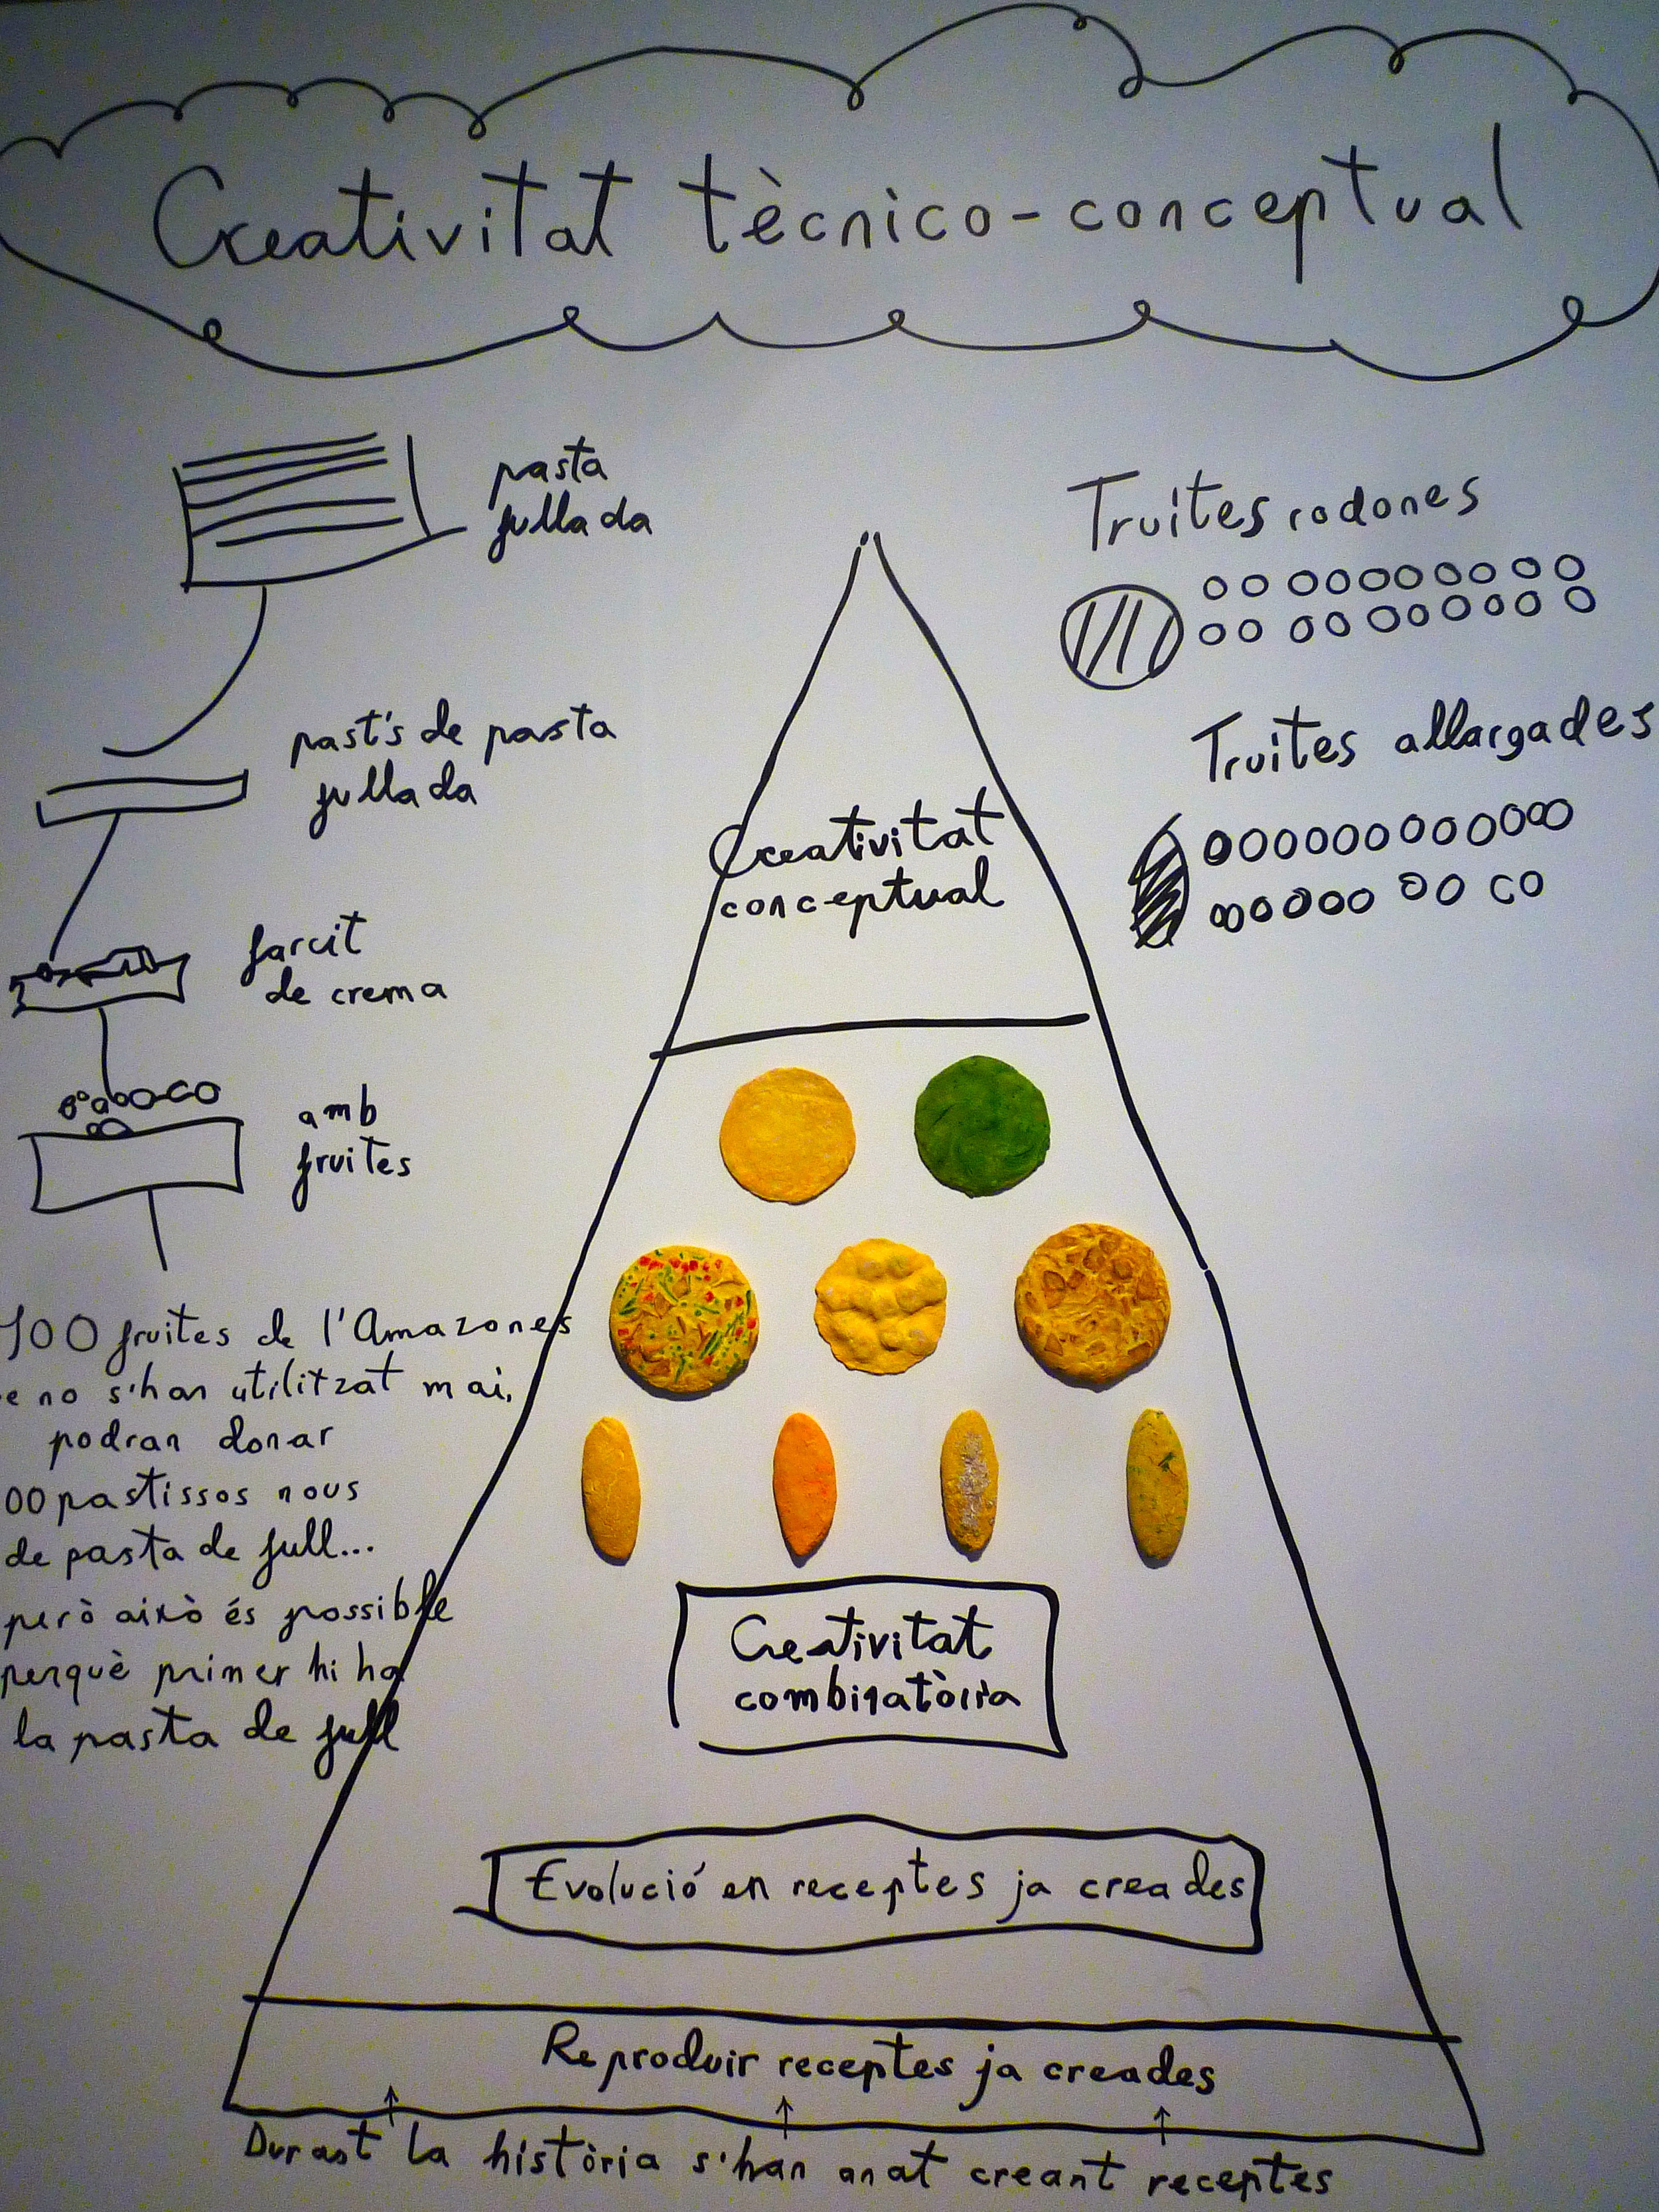 Creativitat tècnico-conceptual
pasta
fullada
past's de pasta
fullada
farcit
de crema
amb
fruites
100 fruites de l'Amazones
e no s'han utilitzat mai,
podran donar
00 pastissos nous
de pasta de full...
però això és possible
perquè primer hi ha
la pasta de full
Truites rodones
Truites allargades
Creativitat
conceptual
Creativitat
combinatòria
Evolució en receptes ja creades
Reproduir receptes ja creades
Durant la història s'han anat creant receptes